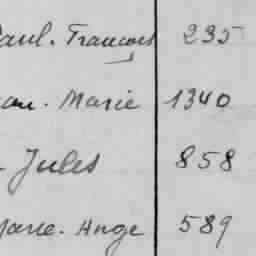 Paul. François 235
an. Marie 1340
- Jules 858
Marie. Ange 589